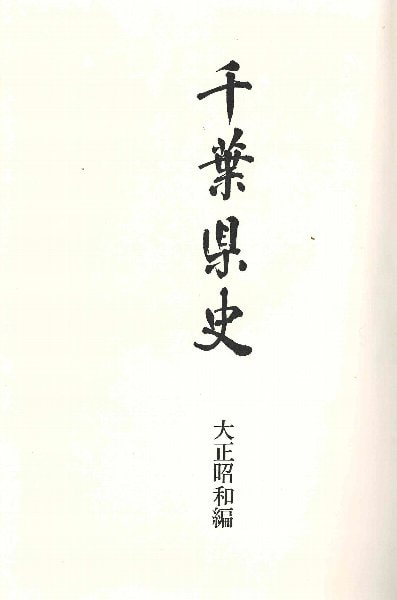 千葉県史
大正昭和編